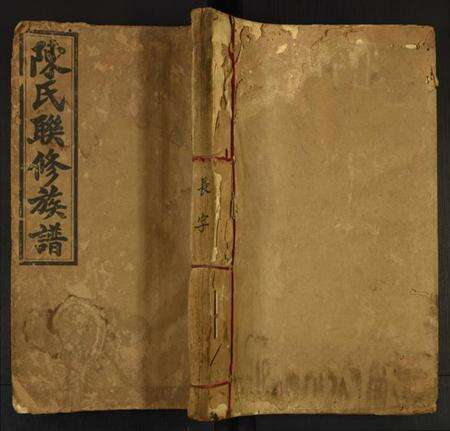 陳氏聯修族譜
長字